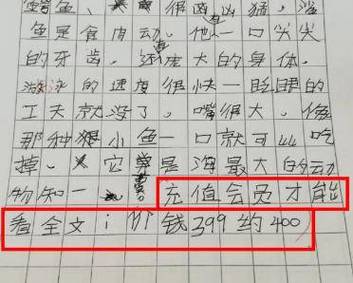 鲨鱼、很凶猛,鲨
鱼是食肉动。他一口尖尖
的牙齿。还庞大的身体。
游泳的速度很快一眨眼的
工夫就没了。嘴很大。像
那种狠小鱼一口就可以吃
掉。它是海最大的动
物知一 充值会员才能
看全文i价钱399约400